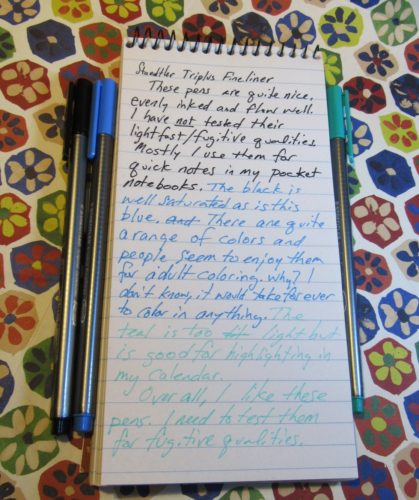 Staedtler Triplus Fineliner
These pens are quite nice,
evenly inked and flow well.
I have not tested their
lightfast/fugitive qualities.
Mostly I use them for
quick notes in my pocket
notebooks. The black is
well saturated as is this
blue. and There are quite
a range of colors and
people seem to enjoy them
for adult coloring. Why? I
don't know, it would take forever
to color in anything. The
teal is too light but
is good for highlighting in
my calendar.
Over all, I like these
pens. I need to test them
for fugitive qualities.